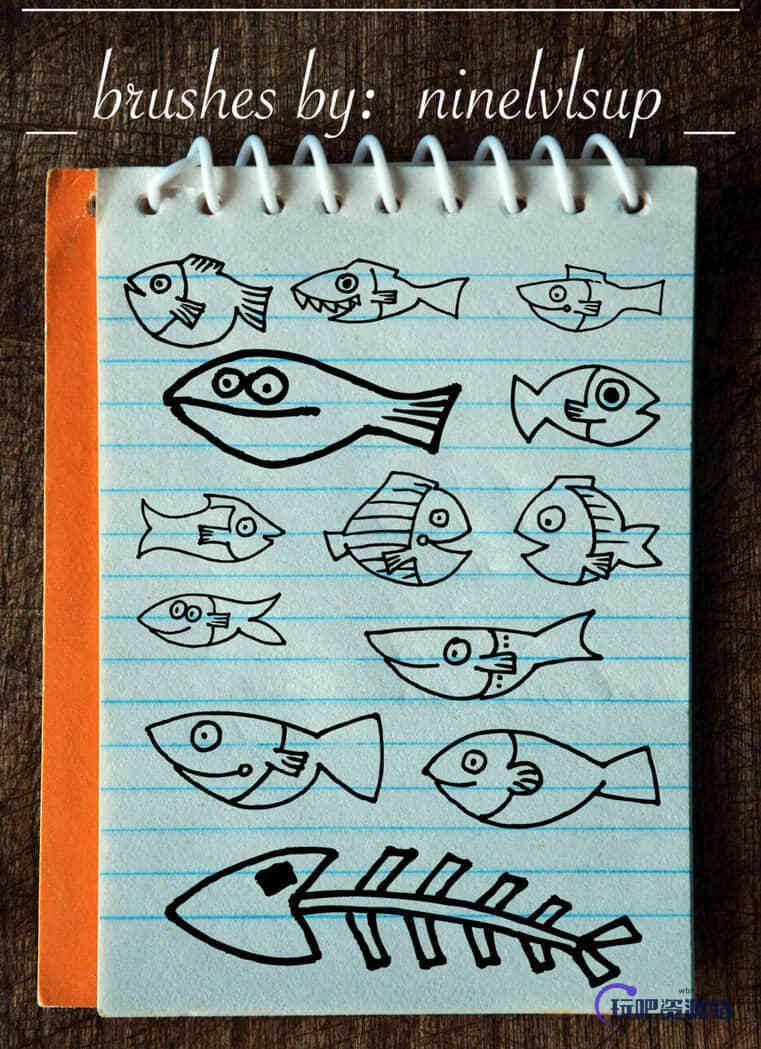 brushes by: ninelvlsup
玩吧资源站